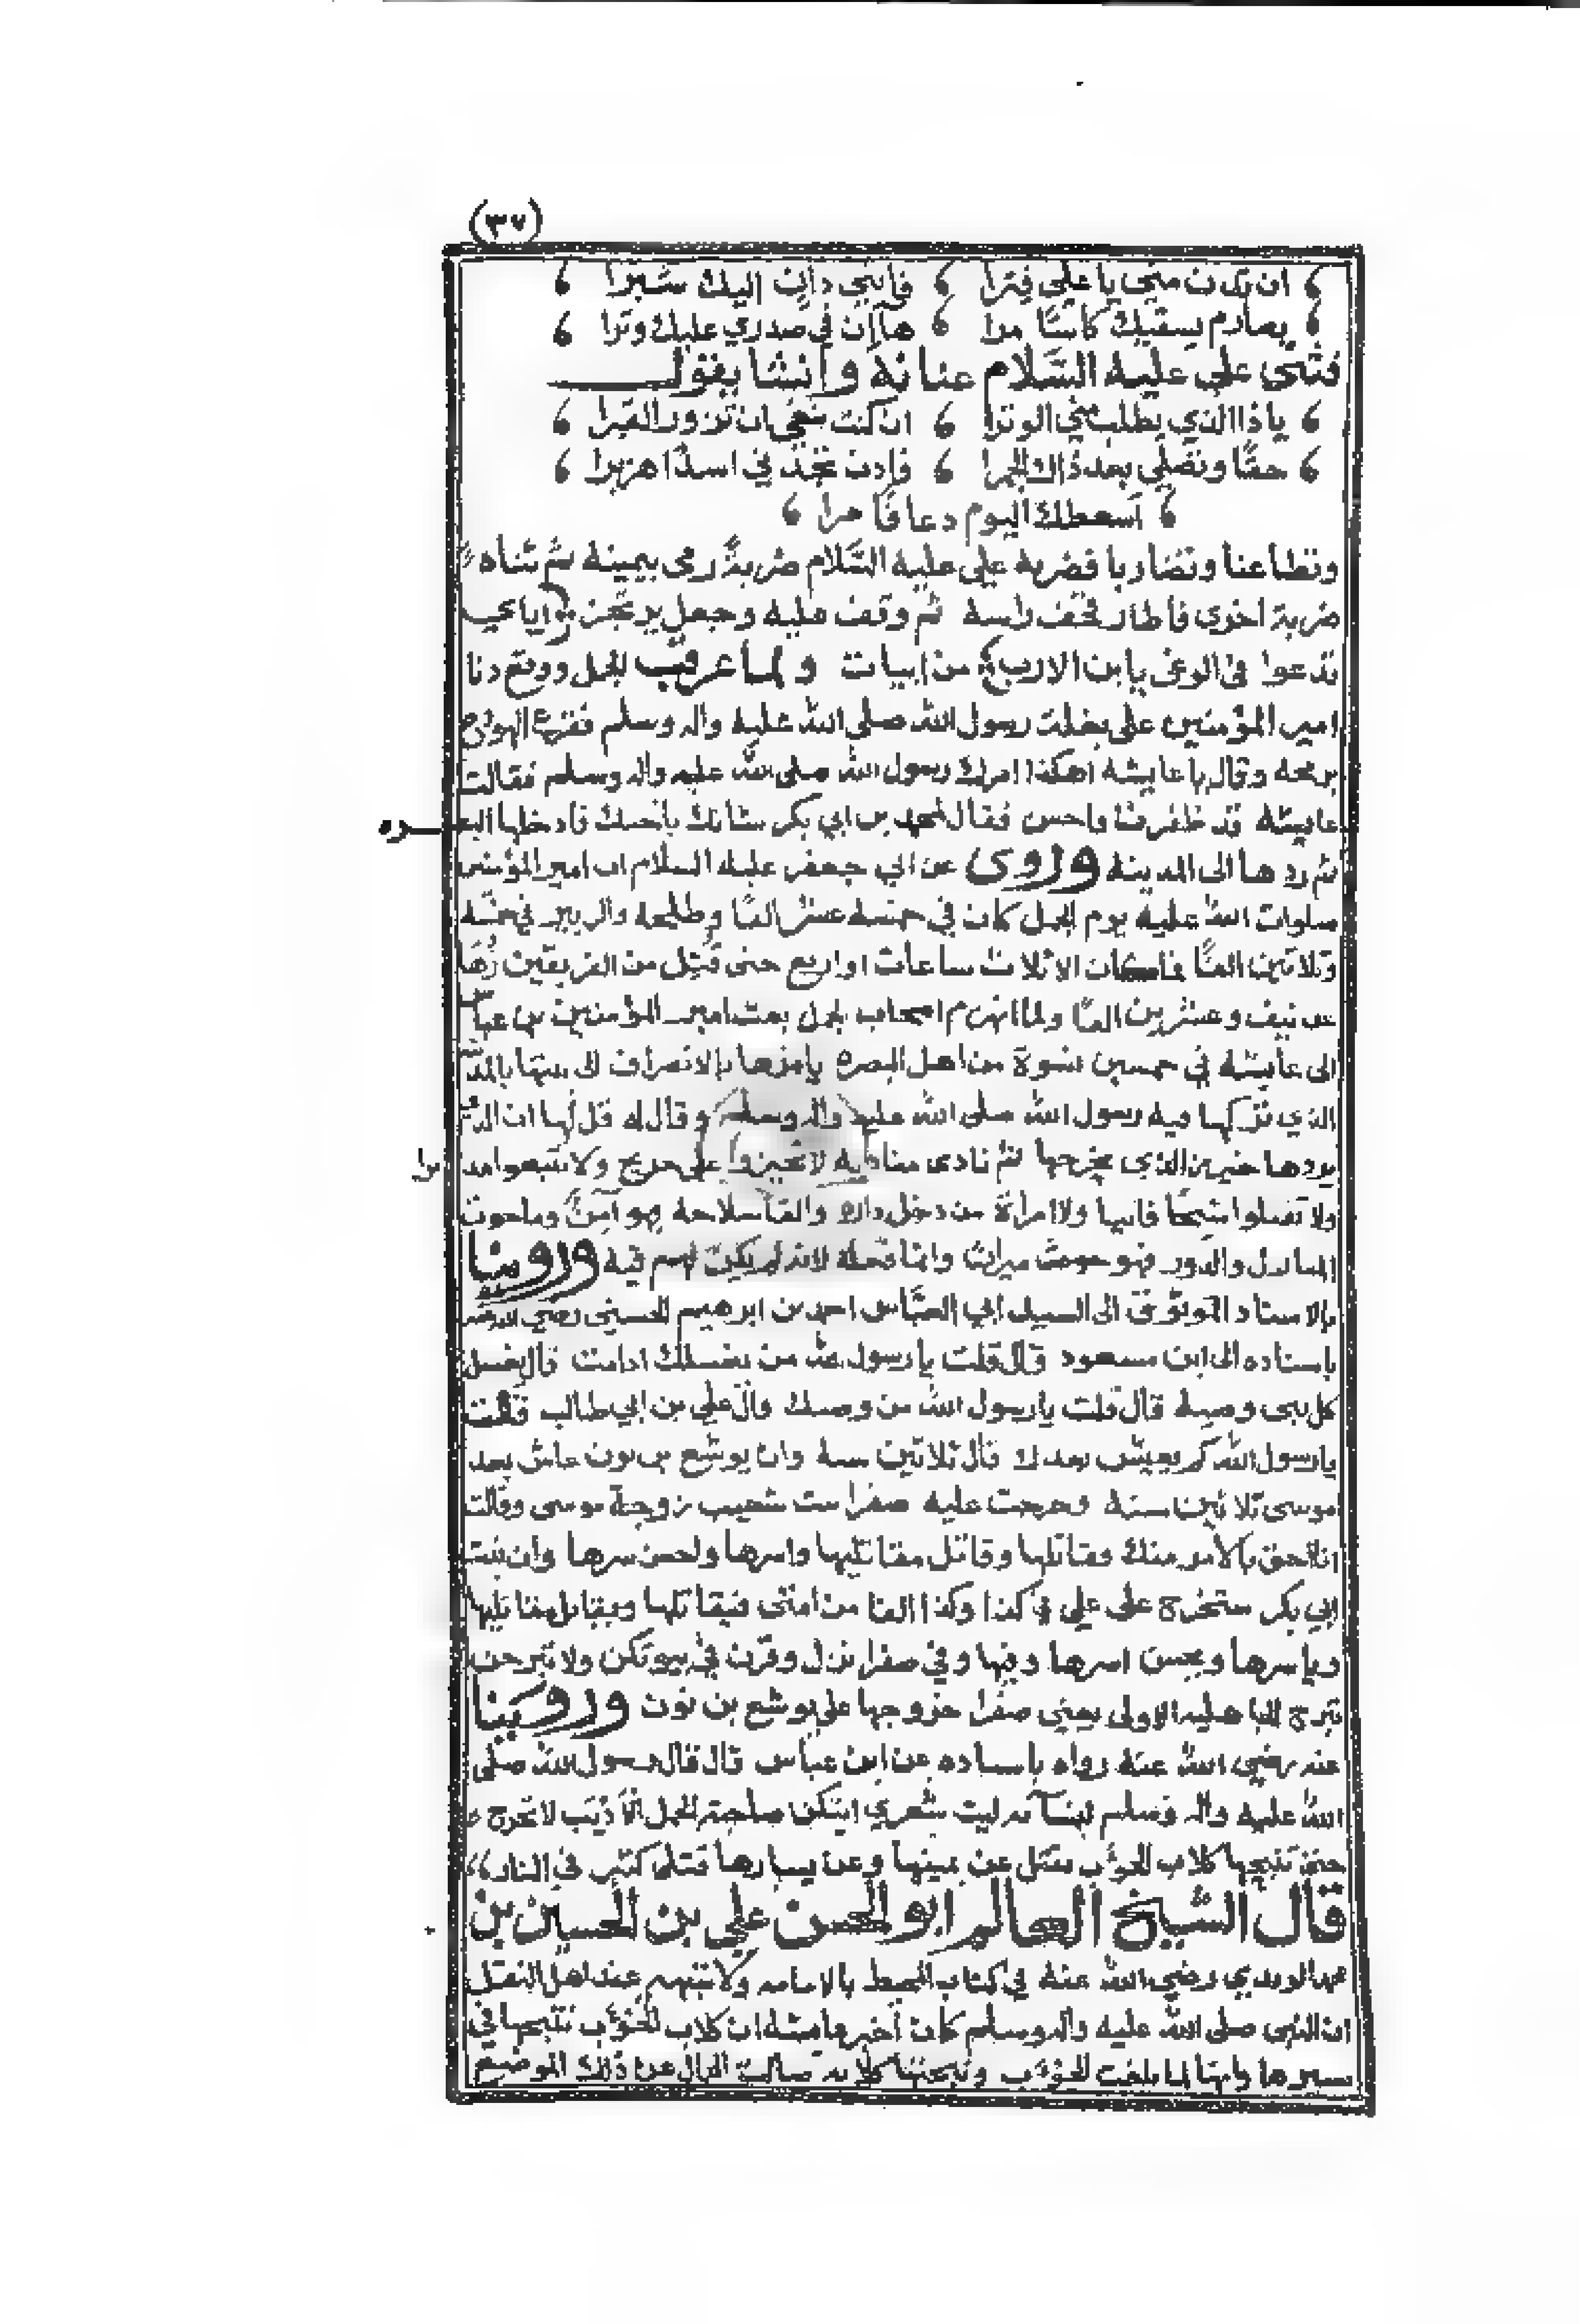 (٣٧)
ان تدن مني يا علي فترا ، فانني دان اليك شبرا
بصارم يسقيك كاسا مرا ، ها ان في صدري عليك وترا
فثنى علي عليه السلام عنانه وانشا يقول
يا ذا الذي يطلب مني الوترا ، ان كنت تبغي ان تزور القبرا
حقا وتصلى بعد ذاك الجمرا ، فادن تجدني اسدا هزبرا
اسعطك اليوم دعافا مرا
وتطاعنا وتضاربا فضربه علي عليه السلام ضربة رمى بيمينه ثم ثناه
ضربة اخرى فاطار قحف راسه ثم وقف عليه وجعل يرتجز
تدعوا في الوغى يا بن الارب من ابيات ولما عرقب الجمل ووقع دنا
امير المؤمنين على بغلة رسول الله صلى الله عليه واله وسلم فقرع الهودج
برمحه وقال يا عايشة اهكذا امرك رسول الله صلى الله عليه واله وسلم فقالت
عايشة قد ظفرت فاحسن فقال لمحمد بن ابي بكر شانك باختك فادخلها البصـ
ـره
ثم ردها الى المدينة وروى عن ابي جعفر عليه السلام ان امير المؤمنين
صلوات الله عليه يوم الجمل كان في خمسة عشر الفا وطلحة والزبير في خمسة
وثلاثين الفا فما كان الا ثلاث ساعات او اربع حتى قتل من الفريقين زها
عن نيف وعشرين الفا ولما انهزم اصحاب الجمل بعث امير المؤمنين بن عباس
الى عايشة في خمسين نسوة من اهل البصره يامرها بالانصراف الى بيتها بالمد
الذي تركها فيه رسول الله صلى الله عليه واله وسلم وقال له قل لها ان الذي
يردها خير من الذي يخرجها ثم نادى مناديه لا تجيزوا على جريح ولا تتبعوا مد
برا
ولا تقتلوا شيخا فانيا ولا امراة من دخل داره والقا سلاحه فهو امن وما حوت
المنازل والدور فهو ميراث وانما لانه لم يكن لهم فيه وروينا
بالاسناد الموثوق الى السيد ابي العباس احمد بن ابرهيم الحسني رضي الله عنه
باسناده الى ابن مسعود قال قلت يا رسول الله من يغسلك اذا مت قال يغسل
كل نبي وصيه قال قلت يا رسول الله من وصيك قال علي بن ابي طالب فقلت
يا رسول الله كم يعيش بعدك قال ثلاثين سنة وان يوشع بن نون عاش بعد
موسى ثلاثين سنة وخرجت عليه صفرا بنت شعيب زوجة موسى وقالت
انا احق بالامر منك فقاتلها وقاتل مقاتليها واسرها واحسن اسرها وان بنت
ابي بكر ستخرج على علي في كذا وكذا الفا من امتي فيقاتلها ويقاتل مقاتليها
وياسرها ويحسن اسرها وفيها وفي صفرا نزل وقرن في بيوتكن ولا تبرجن
تبرج الجاهليه الاولى يعني صفرا خروجها على يوشع بن نون وروينا
عنه رضي الله عنه رواه باسناده عن ابن عباس قال قال رسول الله صلى
الله عليه واله وسلم لنسائه ليت شعري ايتكن صاحبة الجمل الاذيب لا تخرج
حتى تنبحها كلاب الحوئب يقتل عن يمينها وعن يسارها قتلى كثير في النار
قال الشيخ العالم ابو الحسن علي بن الحسين بن
رضي الله عنه في كتاب المحيط بالامامه عند اهل النقل
ان النبي صلى الله عليه واله وسلم كان اخبر عايشة ان كلاب الحوئب تنبحها في
سيرها وانها لما بلغت الحوئب ونبحتها كلابه سالت الجمال عن ذلك الموضع